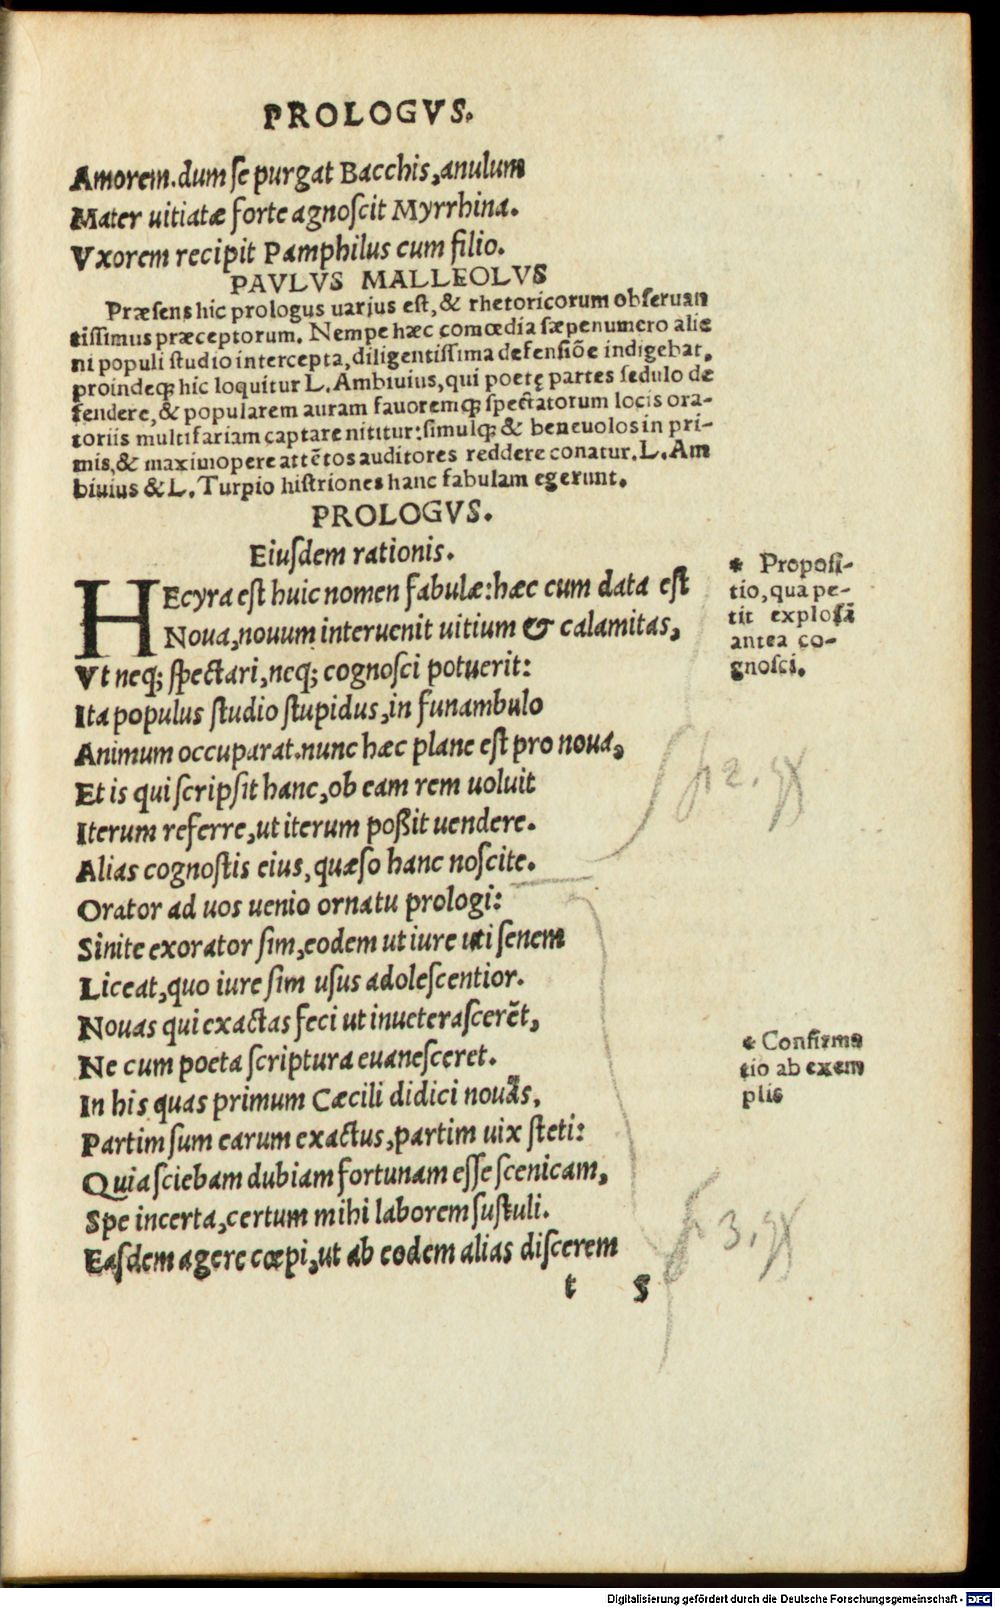 PROLOGVS.
Amorem.dum se purgat Bacchis,anulum
Mater uitiatæ forte agnoscit Myrrhina.
Vxorem recipit Pamphilus cum filio.
PAVLVS MALLEOLVS
Præsens hic prologus uarius est,& rhetoricorum obseruan
tissimus præceptorum. Nempe hæc comœdia sæpenumero alie
ni populi studio intercepta,diligentissima defensiõe indigebat,
proindeqꝫ hic loquitur L. Ambiuius,qui poetę partes sedulo de
fendere,& popularem auram fauoremqꝫ spectatorum locis ora-
toriis multifariam captare nititur:simulqꝫ & beneuolos in pri-
mis,& maximopere attẽtos auditores reddere conatur.L.Am
biuius & L. Turpio histriones hanc fabulam egerunt.
PROLOGVS.
Eiusdem rationis.
HEcyra est huic nomen fabulæ:hæc cum data est
Noua,nouum interuenit uitium & calamitas,
Vt neqꝫ spectari,neqꝫ cognosci potuerit:
Ita populus studio stupidus,in funambulo
Animum occuparat.nunc hæc plane est pro noua,
Et is qui scripsit hanc,ob eam rem uoluit
Iterum referre,ut iterum poßit uendere.
Alias cognostis eius,quæso hanc noscite.
Orator ad uos uenio ornatu prologi:
Sinite exorator sim,eodem ut iure uti senem
Liceat,quo iure sim usus adolescentior.
Nouas qui exactas feci ut inueterascerẽt,
Ne cum poeta scriptura euanesceret.
In his quas primum Cæcili didici nouas,
Partim sum earum exactus,partim uix steti:
Quia sciebam dubiam fortunam esse scenicam,
Spe incerta,certum mihi laborem sustuli.
Easdem agere cœpi,ut ab eodem alias discerem
t 5
* Proposi-
tio,qua pe-
tit explosã
antea co-
gnosci.
2.
* Confirma
tio ab exem
plis
3.
Digitalisierung gefördert durch die Deutsche Forschungsgemeinschaft - DFG